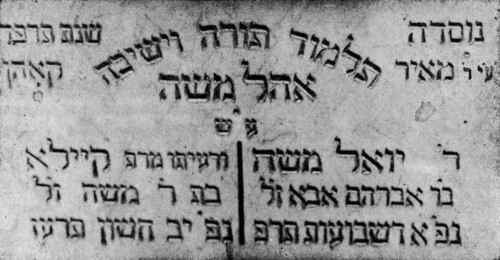 נוסדה תלמוד תורה וישיבה שנת
ע״י ר׳ מאיר קאהן
אהל משה
ע״ש
ר׳ יואל משה
בר אברהם אבא זל
נפ׳ א דשבועות תרפ
ורעיתו מרת קיילא
בת ר׳ משה זל
נפ׳ יב חשון תרעז